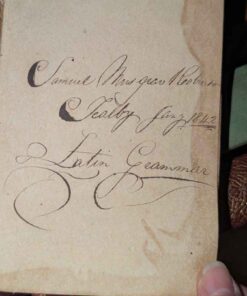 Samuel Musgrav Robinson
Tealby Jany 1842
Latin Grammar